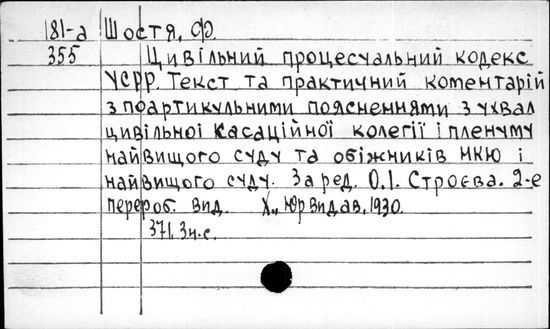 181-а Шостя, Ф.
355 Цивільний процесуальний кодекс
УСРР. Текст та практичний коментарій
з поартикульними поясненнями з ухвал
цивільної касаційної колегії і пленуму
найвищого суду та обіжників НКЮ і
найвищого суду. За ред. О.І. Строєва. 2-е
перероб. вид. Х., Юрвидав, 1930.
371, 3 н.с.